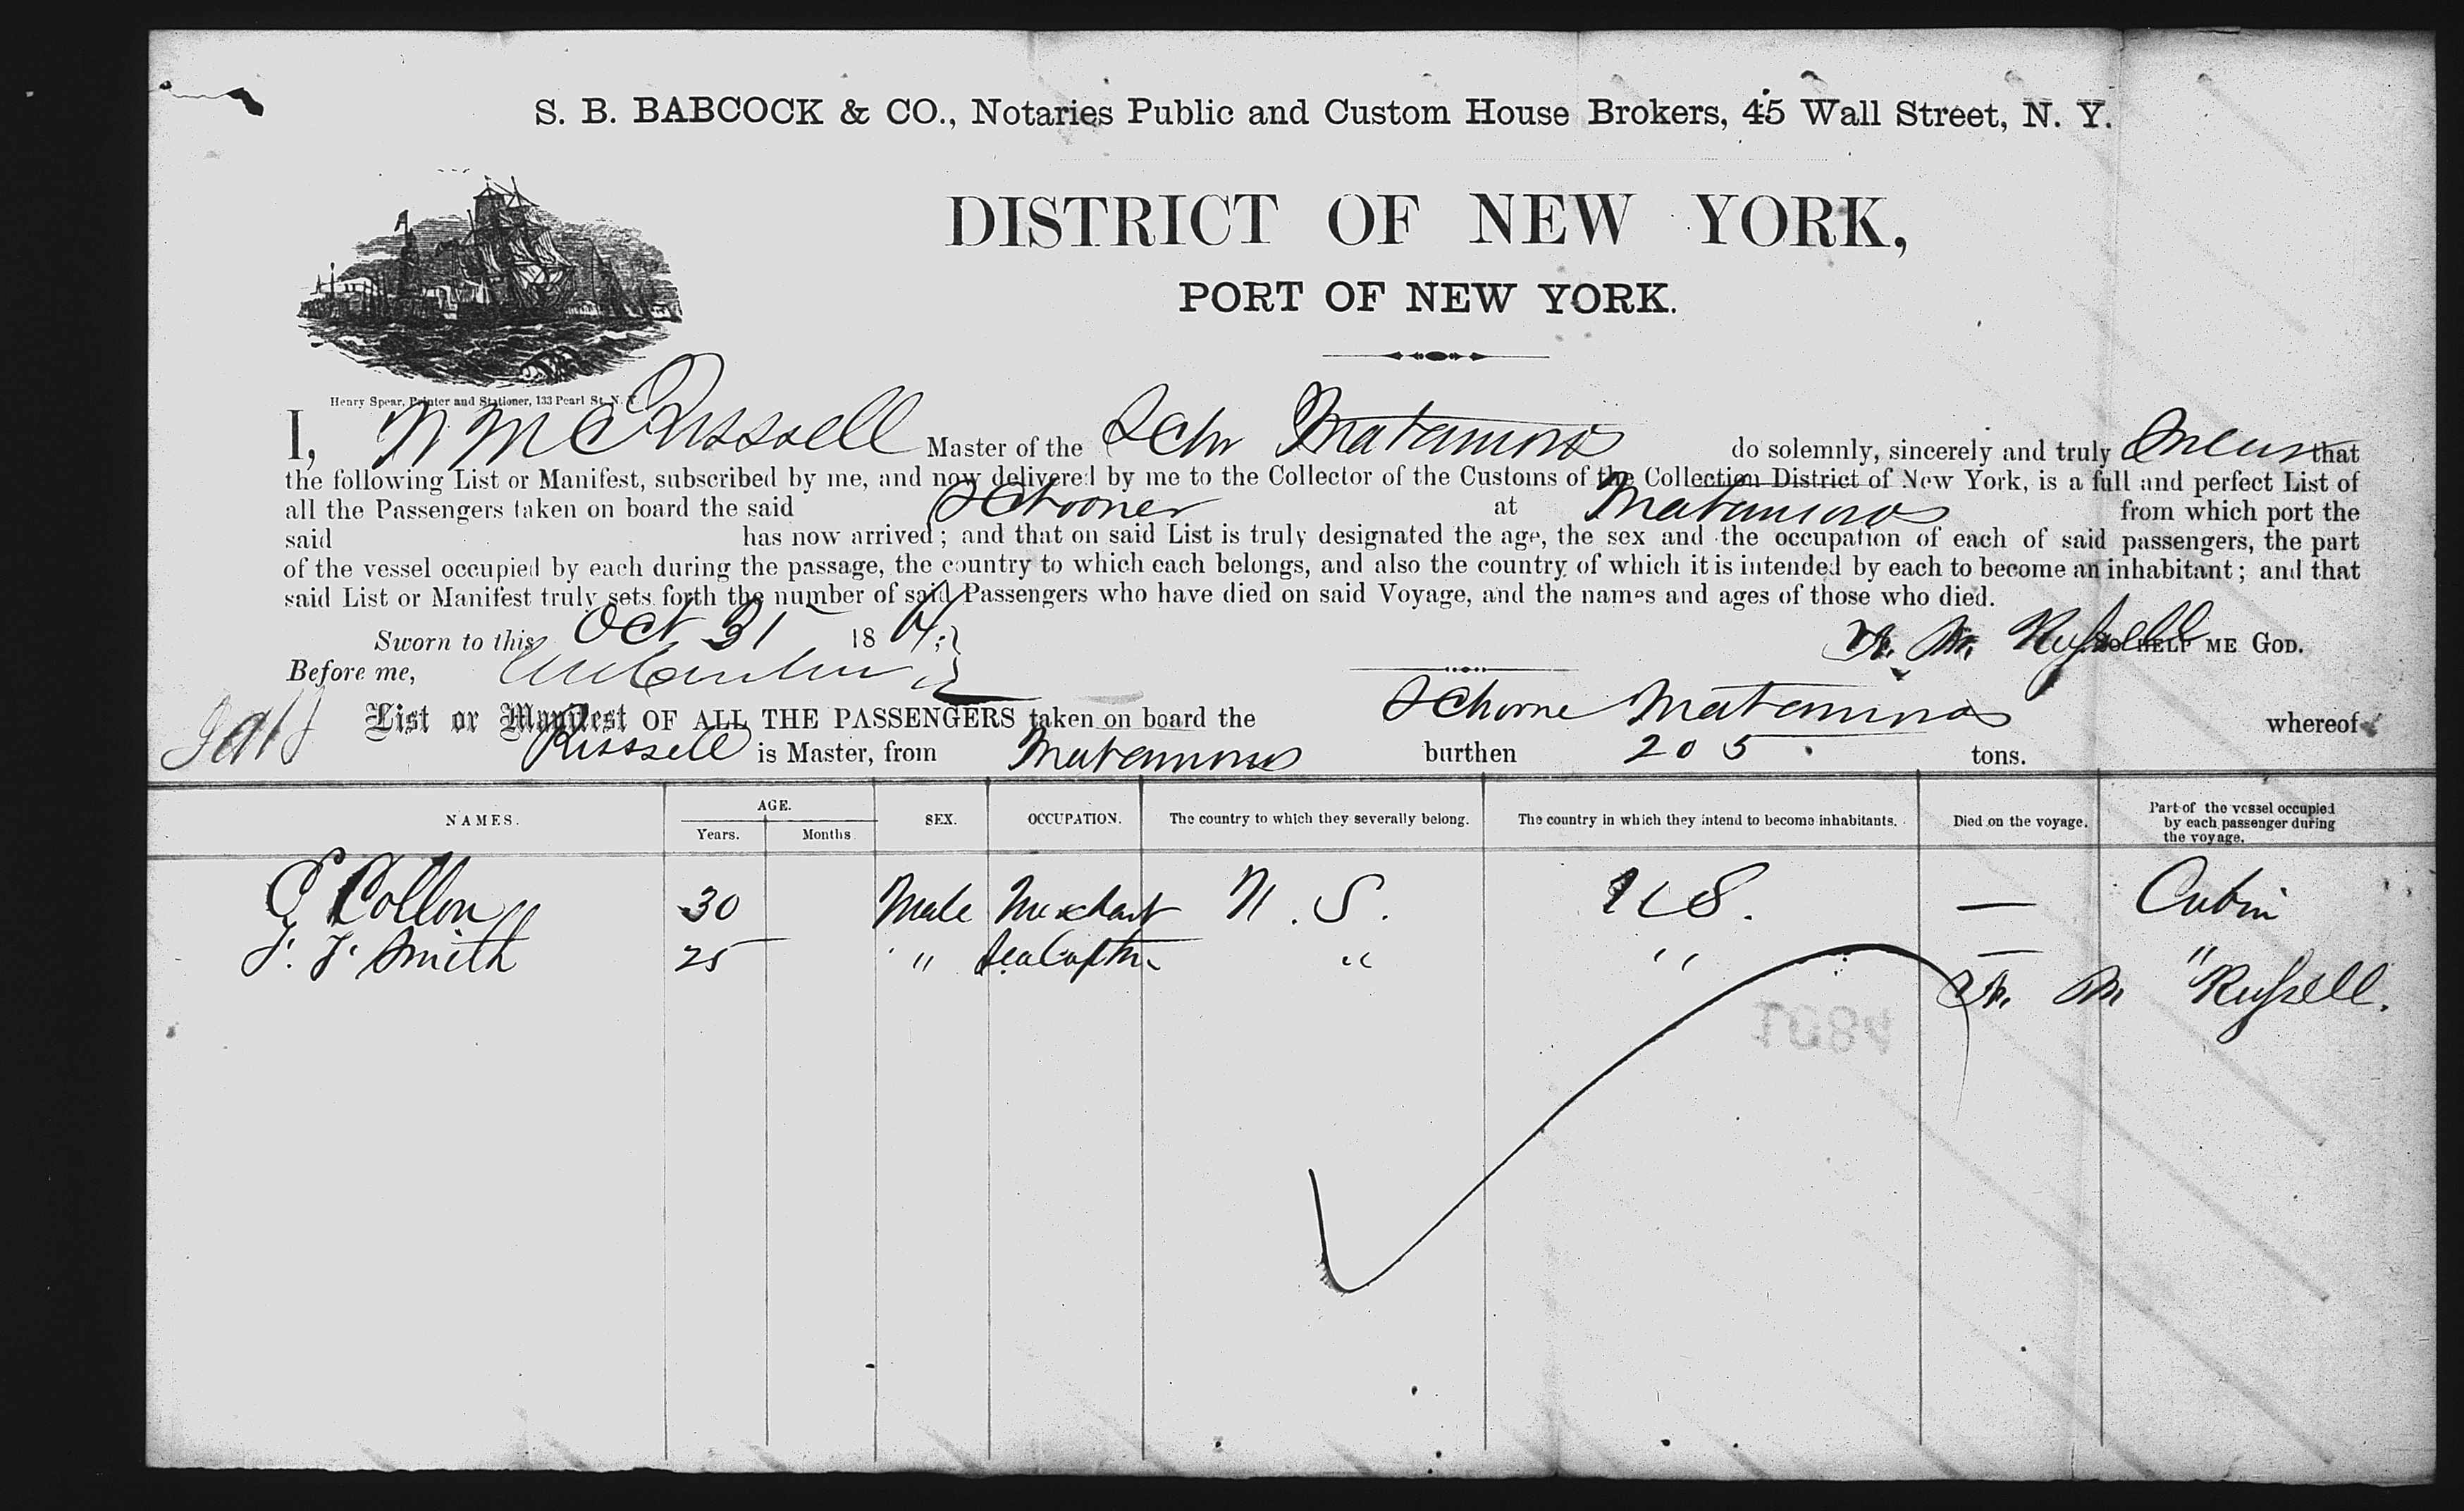 S. B. BABCOCK & CO., Notaries Public and Custom House Brokers, 45 Wall Street, N. Y.
DISTRICT OF NEW YORK,
PORT OF NEW YORK.
Henry Spear, Printer and Stationer, 133 Pearl St. N. Y.
I, Russell Master of the Schr Matamoros do solemnly, sincerely and truly that
the following List or Manifest, subscribed by me, and now delivered by me to the Collector of the Customs of the Collection District of New York, is a full and perfect List of
all the Passengers taken on board the said Schooner at Matamoros from which port the
said has now arrived; and that on said List is truly designated the age, the sex and the occupation of each of said passengers, the part
of the vessel occupied by each during the passage, the country to which each belongs, and also the country of which it is intended by each to become an inhabitant; and that
said List or Manifest truly sets forth the number of said Passengers who have died on said Voyage, and the names and ages of those who died.
Sworn to this Oct 31 1864 M. Russell SO HELP ME GOD.
Before me,
List or Manifest OF ALL THE PASSENGERS taken on board the Schoone Matamoros whereof
Russell is Master, from Matamoros burthen 205 tons.
NAMES. AGE. Years. Months. SEX. OCCUPATION. The country to which they severally belong. The country in which they intend to become inhabitants. Died on the voyage. Part of the vessel occupied by each passenger during the voyage.
30 Male Merchant U.S. US. — Cabin
Smith 25 " Sea Captn " " — "
M Russell.
1084